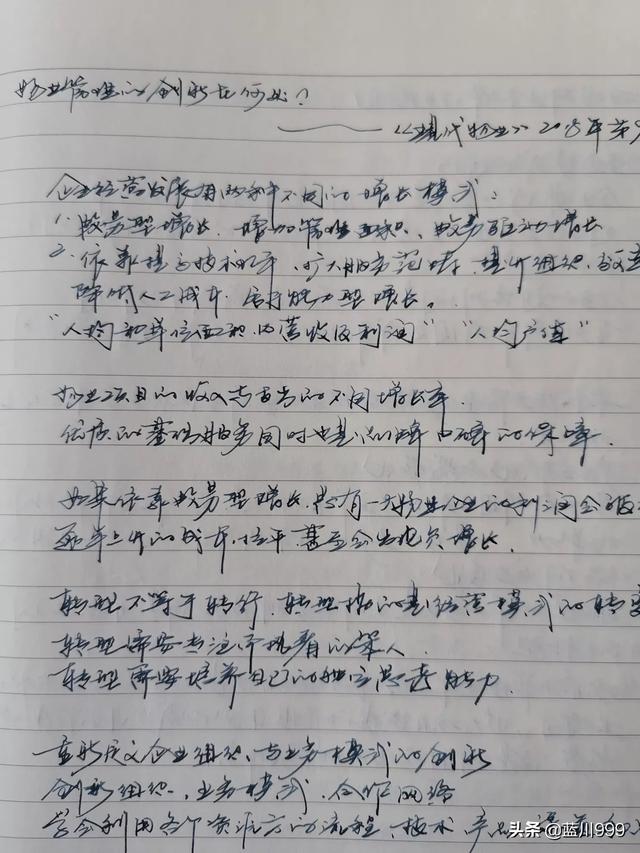 物业管理的创新在何处？
——《现代物业》2018年第9
企业经营发展有两种不同的增长模式：
1. 服务型增长，增加管理面积，服务驱动增长
2. 依靠提高技术水平，扩大服务范畴，提升组织
降低人工成本，盈利能力型增长。
"人均和单位面积的营收及利润" "人均产值"
物业项目的收入与百分的不同增长率.
优质的基础服务同时也是品牌口碑的保障.
如果依靠服务型增长，总有一天物业企业的利润会被
逐年上升的成本拉平甚至会出现负增长.
转型不等于转行，转型指的是经营模式的转变
转型需要专注而执着的深入
转型需要培养自己的独立思考能力.
重新定义企业组织，与业务模式的创新
创新组织、业务模式、合作网络
学会利用各个资源方的流程、技术、产品、渠道
头条 @蓝川999